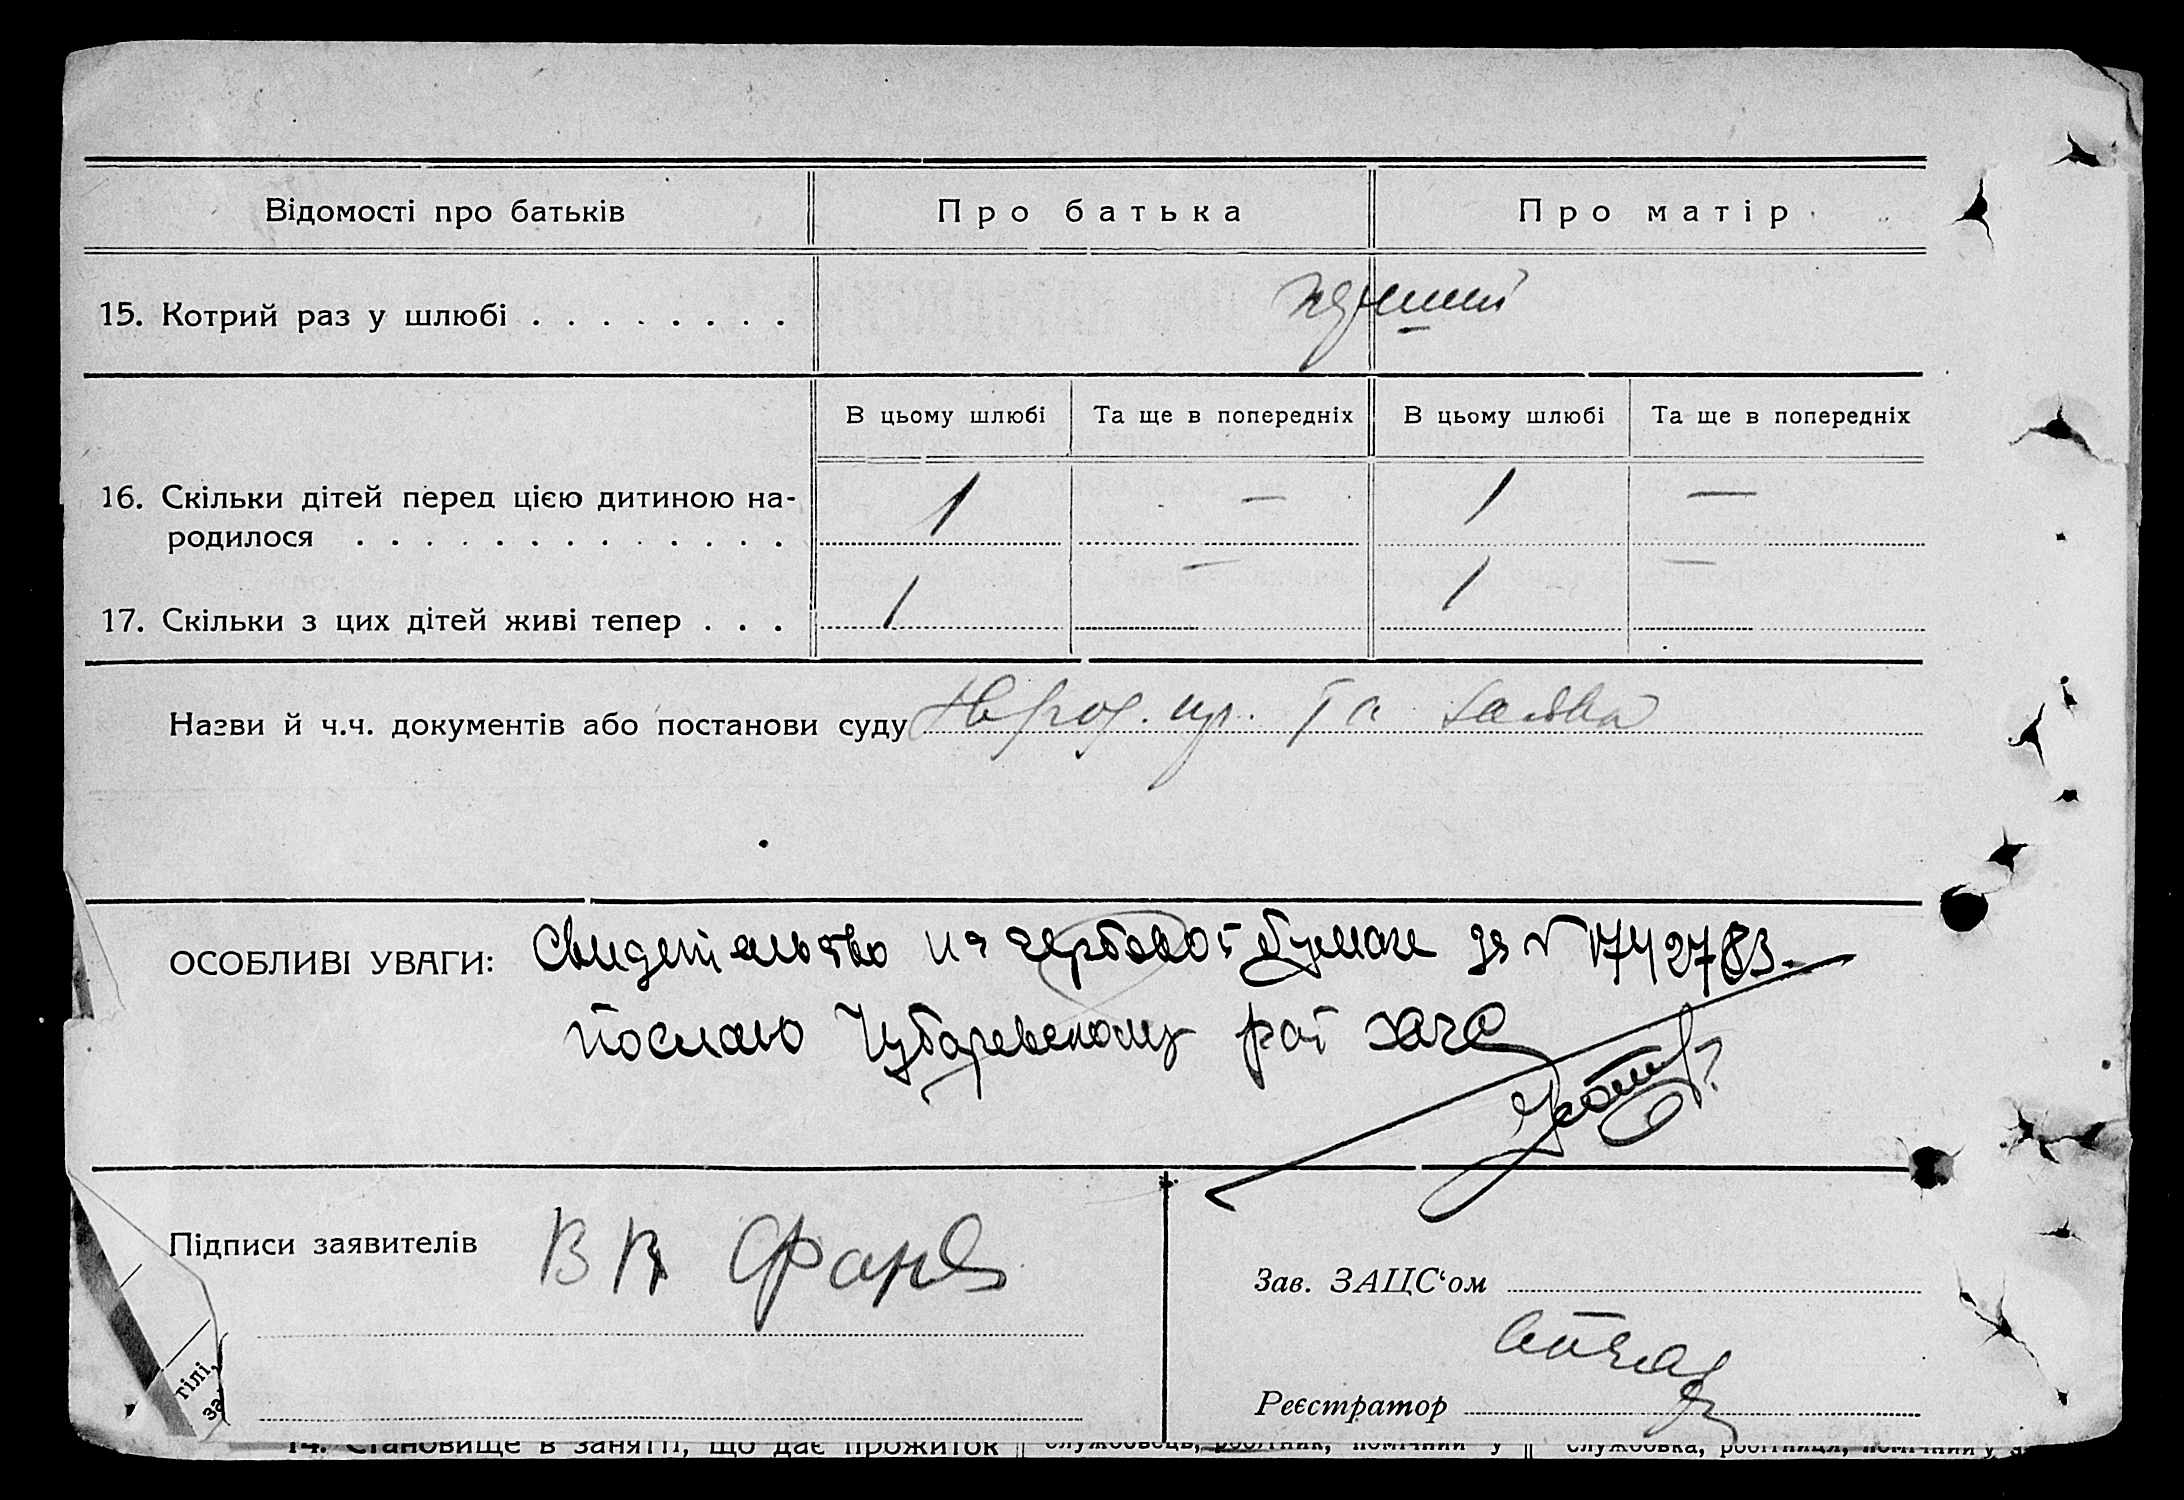 Відомості про батьків
Про батька
Про матір
15. Котрий раз у шлюбі . . . . . . . .
перший
В цьому шлюбі
Та ще в попередніх
В цьому шлюбі
Та ще в попередніх
16. Скільки дітей перед цією дитиною на-
родилося . . . . . . . . . . . . .
1 — 1 —
17. Скільки з цих дітей живі тепер . . .
1 — 1 —
Назви й ч.ч. документів або постанови суду та заява
ОСОБЛИВІ УВАГИ: Свидетельство на гербовой бумаге за № 1742783.
послано Чубаревскому рай загс
Підписи заявителів
Зав. ЗАЦС‘ом
Реєстратор
тілі,
за
14. Становище в занятті, що дає прожиток
службовець, робітник, помічний у
службовка, робітниця, помічний у